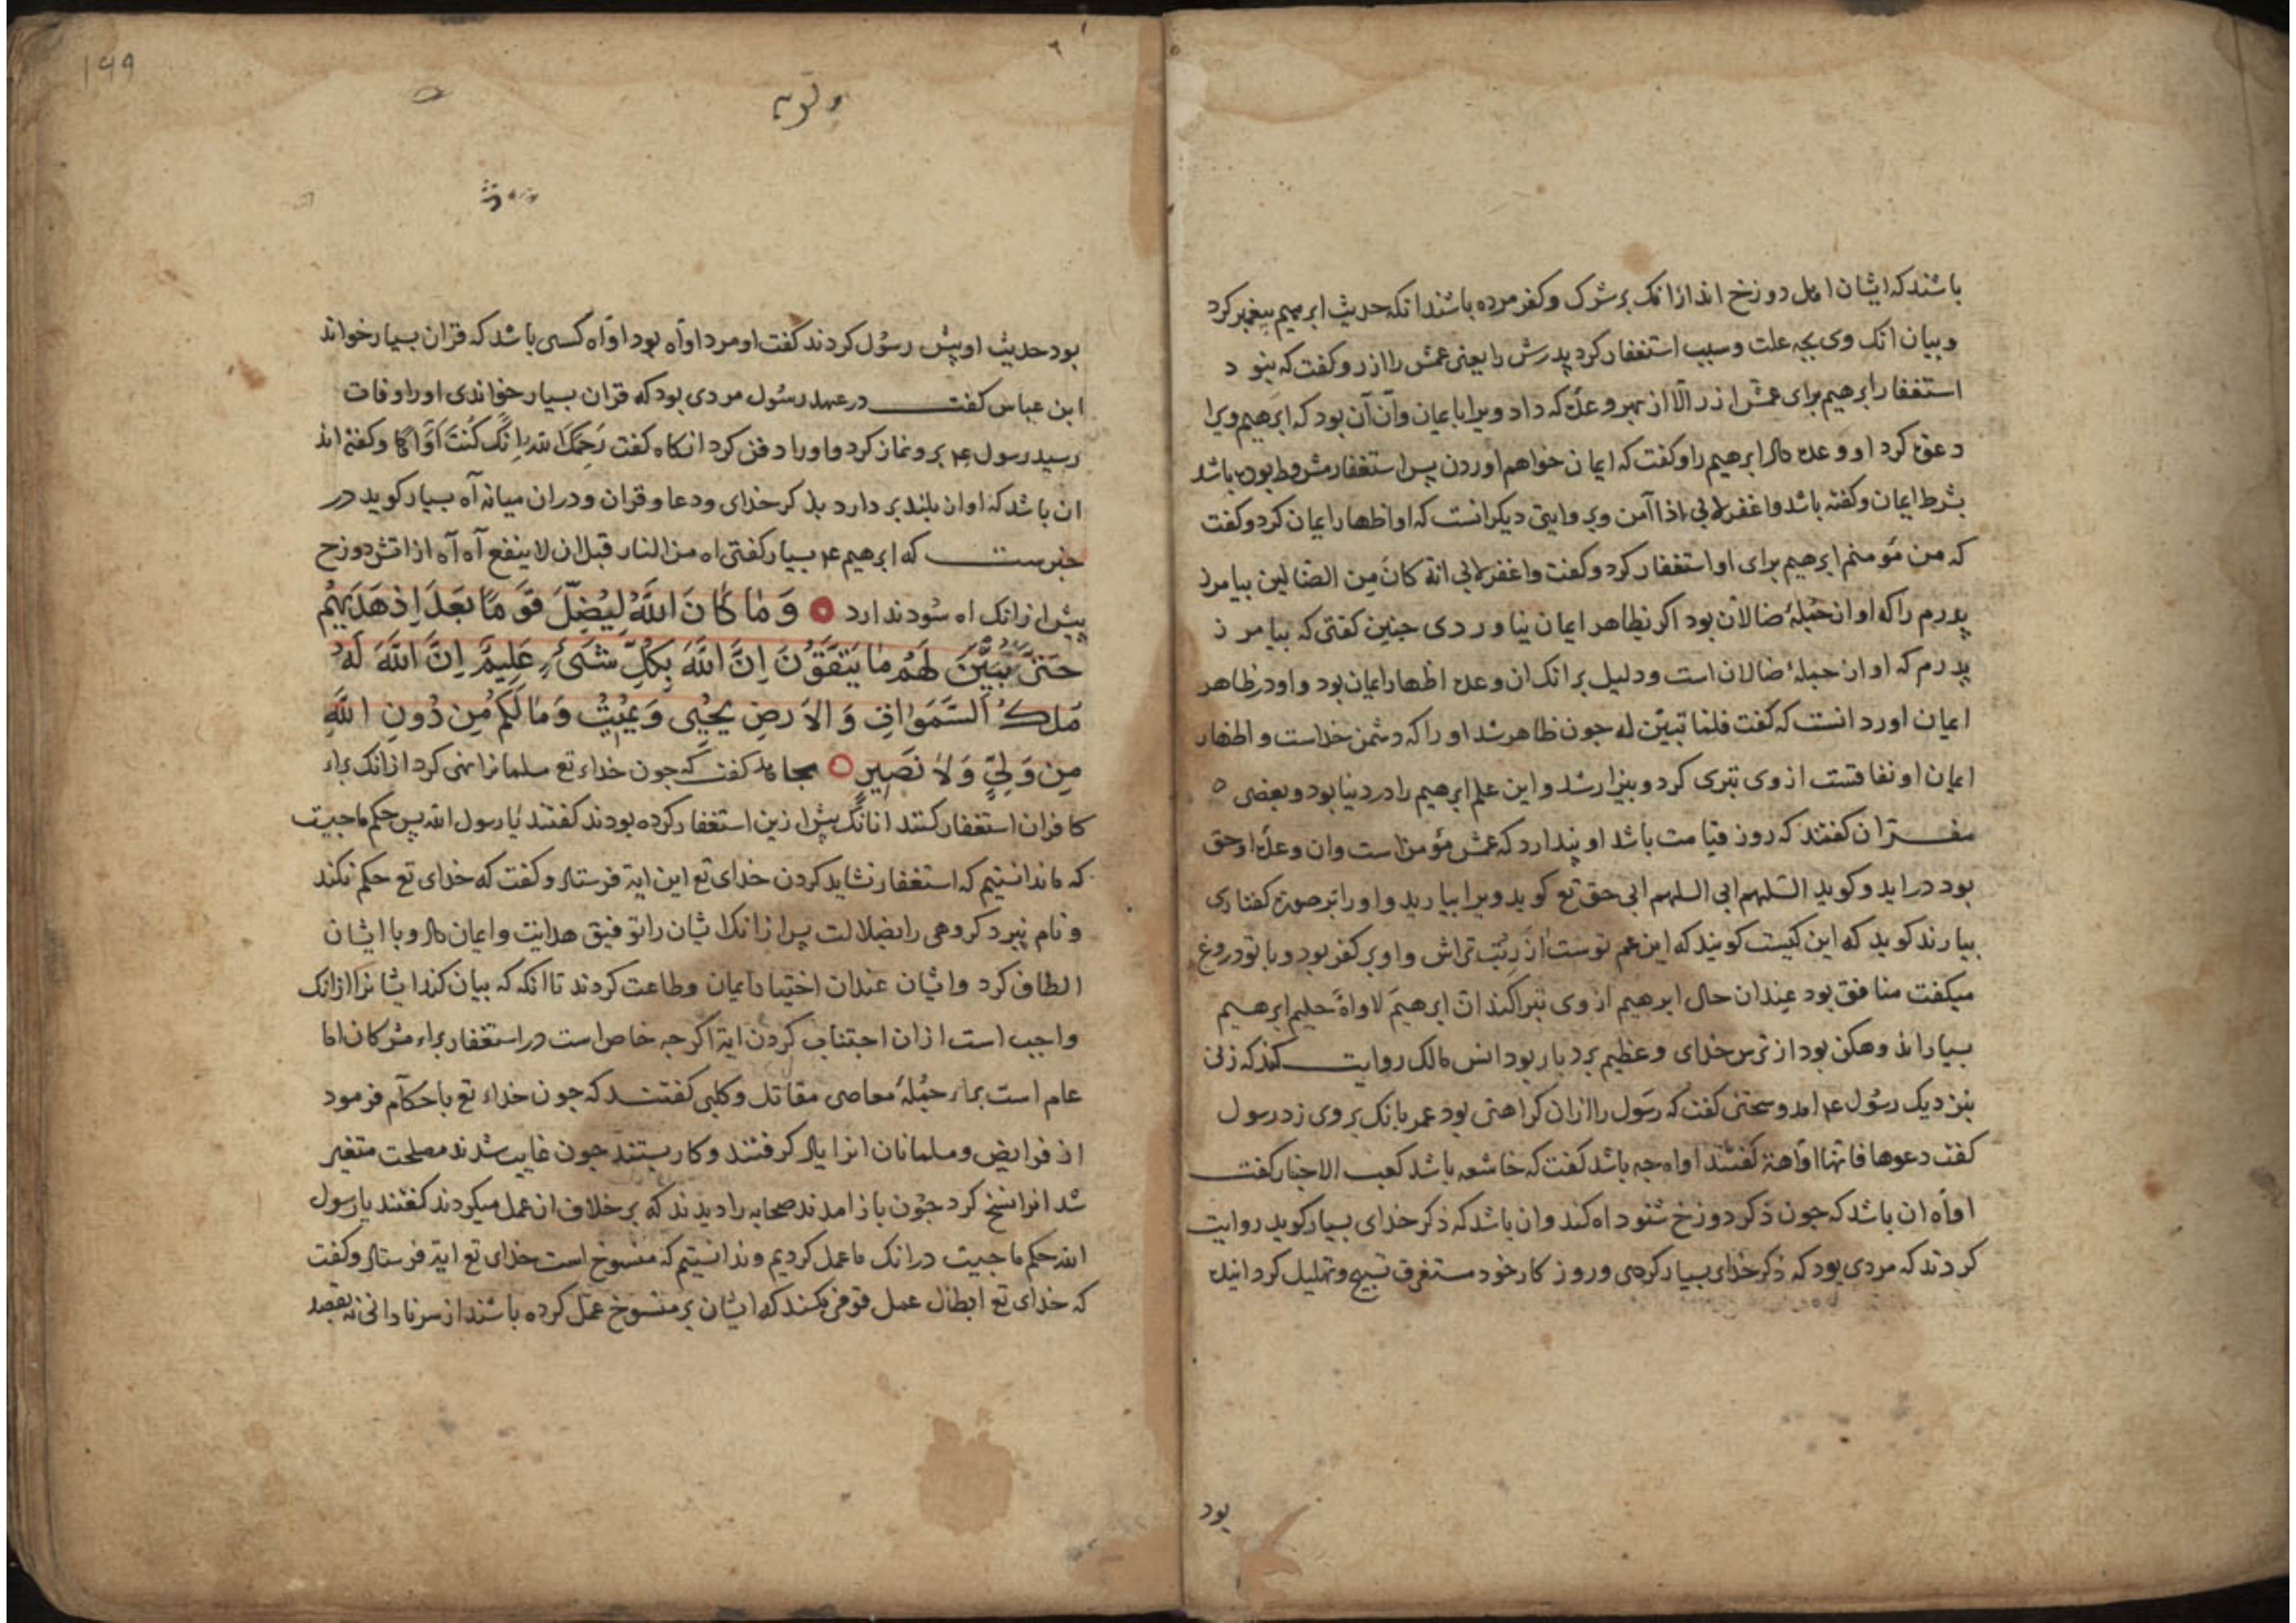 باشند که ایشان اهل دوزخ اند ازانک بر شرک و کفر مرده باشند انکه حدیث ابرهیم پیغمبر کرد
و بیان انک وی بچه علت و سبب استغفار کرد پدرش را یعنی عمش را ازر و کفت که نبود
استغفار ابرهیم برای عمش ازر الا از بهر وعدۀ که داد ویرا بایمان و آن آن بود که ابرهیم ویرا
دعوة کرد او وعده داد ابرهیم را و کفت که ایمان خواهم اوردن پس استغفار مشروط بوده باشد
بشرط ایمان و کفته باشد واغفر لابی اذا آمن و بروایتی دیکر انست که او اظهار ایمان کرد و کفت
که من مؤمنم ابرهیم برای او استغفار کرد و کفت واغفر لابی انه کان من الضالین بیامرز
پدرم را که او از جملۀ ضالان بود اکر بظاهر ایمان نیاوردی چنین کفتی که بیامرز
پدرم که او از جملۀ ضالان است و دلیل بر انک ان وعده اظهار ایمان بود و او در ظاهر
ایمان اورد انست که کفت فلما تبین له چون ظاهر شد او را که دشمن خداست و اظهار
ایمان او نفاقست از وی تبری کرد و بیزار شد و این علم ابرهیم را در دنیا بود و بعضی
مفسران کفتند که روز قیامت باشد او پندارد که عمش مؤمن است وان وعدۀ او حق
بود در اید و کوید اللهم ابی اللهم ابی حق تع کوید ویرا بیارید و او را بر صورة کفتاری
بیارند کوید که این کیست کویند که این عم توست ازر بت تراش و او بر کفر بود و با تو دروغ
میکفت منافق بود عندان حال ابرهیم از وی تبرا کند ان ابرهیم لاواه حلیم ابرهیم
بسیار اند وهکن بود از ترس خدای و عظیم بردبار بود انس مالک روایت کند که زنی
بنزدیک رسول عم امد و سخنی کفت که رسول را ازان کراهتی بود عمر بانک بر وی زد رسول
کفت دعوها فانها اواهة کفتند اواه چه باشد کفت که خاشعه باشد کعب الاحبار کفت
اواه ان باشد که چون ذکر دوزخ شنود اه کند وان باشد که ذکر خدای بسیار کوید روایت
کردند که مردی بود که ذکر خدای بسیار کردی و روزکار خود مستغرق تسبیح و تهلیل کردانیده
بود
۱۹۹
بود حدیث او پیش رسول کردند کفت او مرد اواه بود اواه کسی باشد که قران بسیار خواند
ابن عباس کفت در عهد رسول مردی بود که قران بسیار خواندی او را وفات
رسید رسول عم برو نماز کرد و او را دفن کرد انکاه کفت رَحِمَكَ الله اِنَّكَ كُنْتَ اَوَّاهًا و کفته اند
ان باشد که اواز بلند بر دارد بذکر خدای و دعا و قران و دران میانه آه بسیار کوید در
خبرست که ابرهیم عم بسیار کفتی اه من النار قبل ان لا ینفع آه آه از اتش دوزخ
پیش ازانک اه سود ندارد وَ مَا كَانَ اللّٰهُ لِيُضِلَّ قَوْمًا بَعْدَ اِذْ هَدٰيهُمْ
حَتّٰى يُبَيِّنَ لَهُمْ مَا يَتَّقُوْنَ اِنَّ اللّٰهَ بِكُلِّ شَيْءٍ عَلِيمٌ اِنَّ اللّٰهَ لَهُ
مُلْكُ السَّمٰوَاتِ وَ الْاَرْضِ يُحْيِى وَ يُمِيتُ وَ مَا لَكُمْ مِنْ دُونِ اللّٰهِ
مِنْ وَلِيٍّ وَ لَا نَصِيرٍ مجاهد کفت که چون خداء تع مسلمانرا نهی کرد ازانک براء
کافران استغفار کنند انانک پیش ازین استغفار کرده بودند کفتند یا رسول الله پس حکم ما چیست
که ما ندانستیم که استغفار نشاید کردن خدای تع این ایة فرستاد و کفت که خدای تع حکم نکند
و نام نبرد کروهی را بضلالت پس ازانک ایشان را توفیق هدایت و ایمان داد و با ایشان
الطاف کرد و ایشان عندان اختیار ایمان و طاعت کردند تا انکه که بیان کند ایشانرا ازانک
واجب است ازان اجتناب کردن ایة اکر چه خاص است در استغفار براء مشرکان اما
عام است براء جملۀ معاصی مقاتل و کلبی کفتند که چون خداء تع باحکام فرمود
از فرایض و مسلمانان انرا یاد کرفتند و کار بستند چون غایب شدند مصلحت متغیر
شد انرا نسخ کرد چون باز امدند صحابه را دیدند که بر خلاف ان عمل میکردند کفتند یا رسول
الله حکم ما چیست درانک ما عمل کردیم و ندانستیم که منسوخ است خدای تع ایة فرستاد و کفت
که خدای تع ابطال عمل قومی نکند که ایشان بر منسوخ عمل کرده باشند از سر نادانی نه بقصد